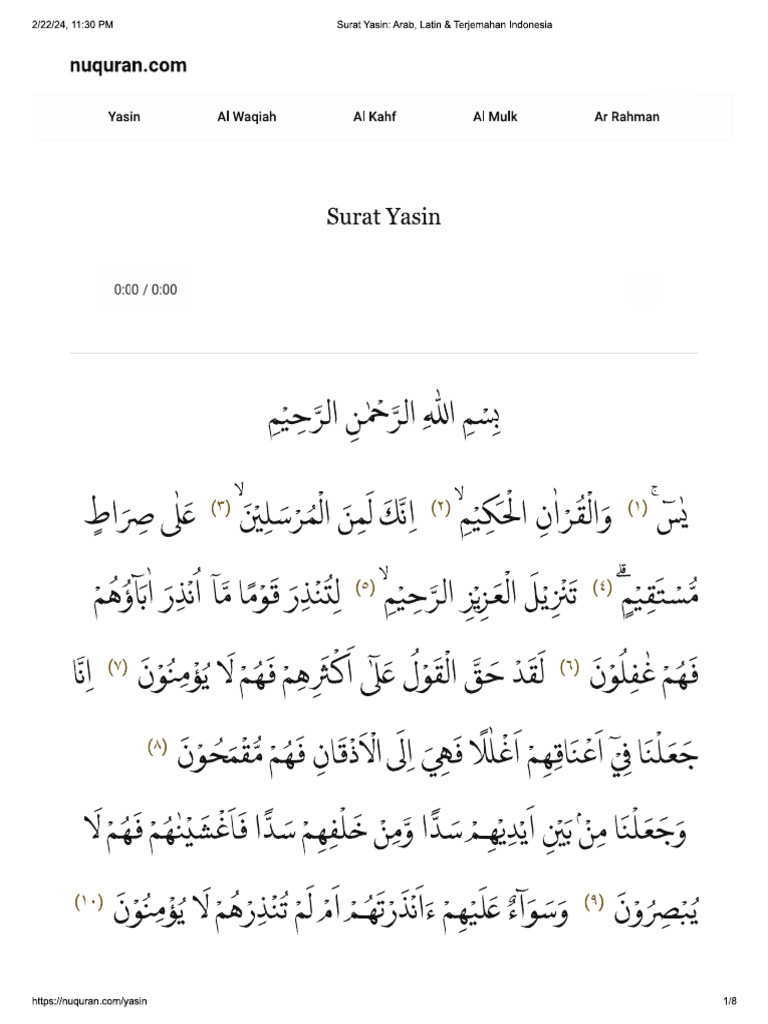 2/22/24, 11:30 PM Surat Yasin: Arab, Latin & Terjemahan Indonesia
nuquran.com
Yasin Al Waqiah Al Kahf Al Mulk Ar Rahman
Surat Yasin
0:00 / 0:00
بِسْمِ اللّٰهِ الرَّحْمٰنِ الرَّحِيْمِ
يٰسۤ ۚ (١) وَالْقُرْاٰنِ الْحَكِيْمِۙ (٢) اِنَّكَ لَمِنَ الْمُرْسَلِيْنَۙ (٣) عَلٰى صِرَاطٍ
مُّسْتَقِيْمٍۗ (٤) تَنْزِيْلَ الْعَزِيْزِ الرَّحِيْمِۙ (٥) لِتُنْذِرَ قَوْمًا مَّآ اُنْذِرَ اٰبَاۤؤُهُمْ
فَهُمْ غٰفِلُوْنَ (٦) لَقَدْ حَقَّ الْقَوْلُ عَلٰٓى اَكْثَرِهِمْ فَهُمْ لَا يُؤْمِنُوْنَ (٧) اِنَّا
جَعَلْنَا فِيْٓ اَعْنَاقِهِمْ اَغْلٰلًا فَهِيَ اِلَى الْاَذْقَانِ فَهُمْ مُّقْمَحُوْنَ (٨)
وَجَعَلْنَا مِنْۢ بَيْنِ اَيْدِيْهِمْ سَدًّا وَّمِنْ خَلْفِهِمْ سَدًّا فَاَغْشَيْنٰهُمْ فَهُمْ لَا
يُبْصِرُوْنَ (٩) وَسَوَاۤءٌ عَلَيْهِمْ ءَاَنْذَرْتَهُمْ اَمْ لَمْ تُنْذِرْهُمْ لَا يُؤْمِنُوْنَ (١٠)
https://nuquran.com/yasin 1/8